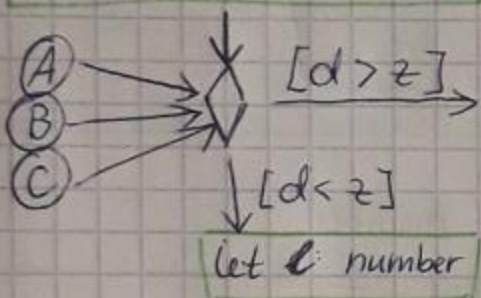 A
B
C
[d > z]
[d < z]
let l: number